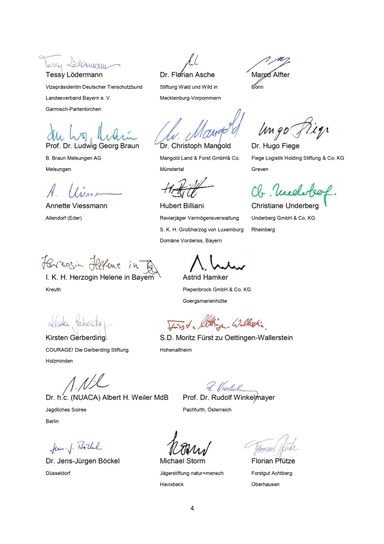 Tessy Lödermann
Tessy Lödermann
Vizepräsidentin Deutscher Tierschutzbund
Landesverband Bayern e. V.
Garmisch-Partenkirchen
Dr. Florian Asche
Stiftung Wald und Wild in
Mecklenburg-Vorpommern
Marco Alfter
Bonn
Prof. Dr. Ludwig Georg Braun
B. Braun Melsungen AG
Melsungen
Dr. Christoph Mangold
Mangold Land & Forst GmbH& Co.
Münstertal
Hugo Fiege
Dr. Hugo Fiege
Fiege Logistik Holding Stiftung & Co. KG
Greven
Annette Viessmann
Allendorf (Eder)
Hubert Billiani
Revierjäger Vermögensverwaltung
S. K. H. Großherzog von Luxemburg
Domäne Vorderriss, Bayern
Christiane Underberg
Underberg GmbH & Co. KG
Rheinberg
Herzogin Helene in Bayern
I. K. H. Herzogin Helene in Bayern
Kreuth
Astrid Hamker
Piepenbrock GmbH & Co. KG
Goergsmarienhütte
Kirsten Gerberding
COURAGE! Die Gerberding Stiftung
Holzminden
S.D. Moritz Fürst zu Oettingen-Wallerstein
Hohenaltheim
Dr. h.c. (NUACA) Albert H. Weiler MdB
Jagdliches Soiree
Berlin
Prof. Dr. Rudolf Winkelmayer
Pachfurth, Österreich
Dr. Jens-Jürgen Böckel
Düsseldorf
Michael Storm
Jägerstiftung natur+mensch
Havixbeck
Florian Pfütze
Forstgut Achtberg
Oberhausen
4